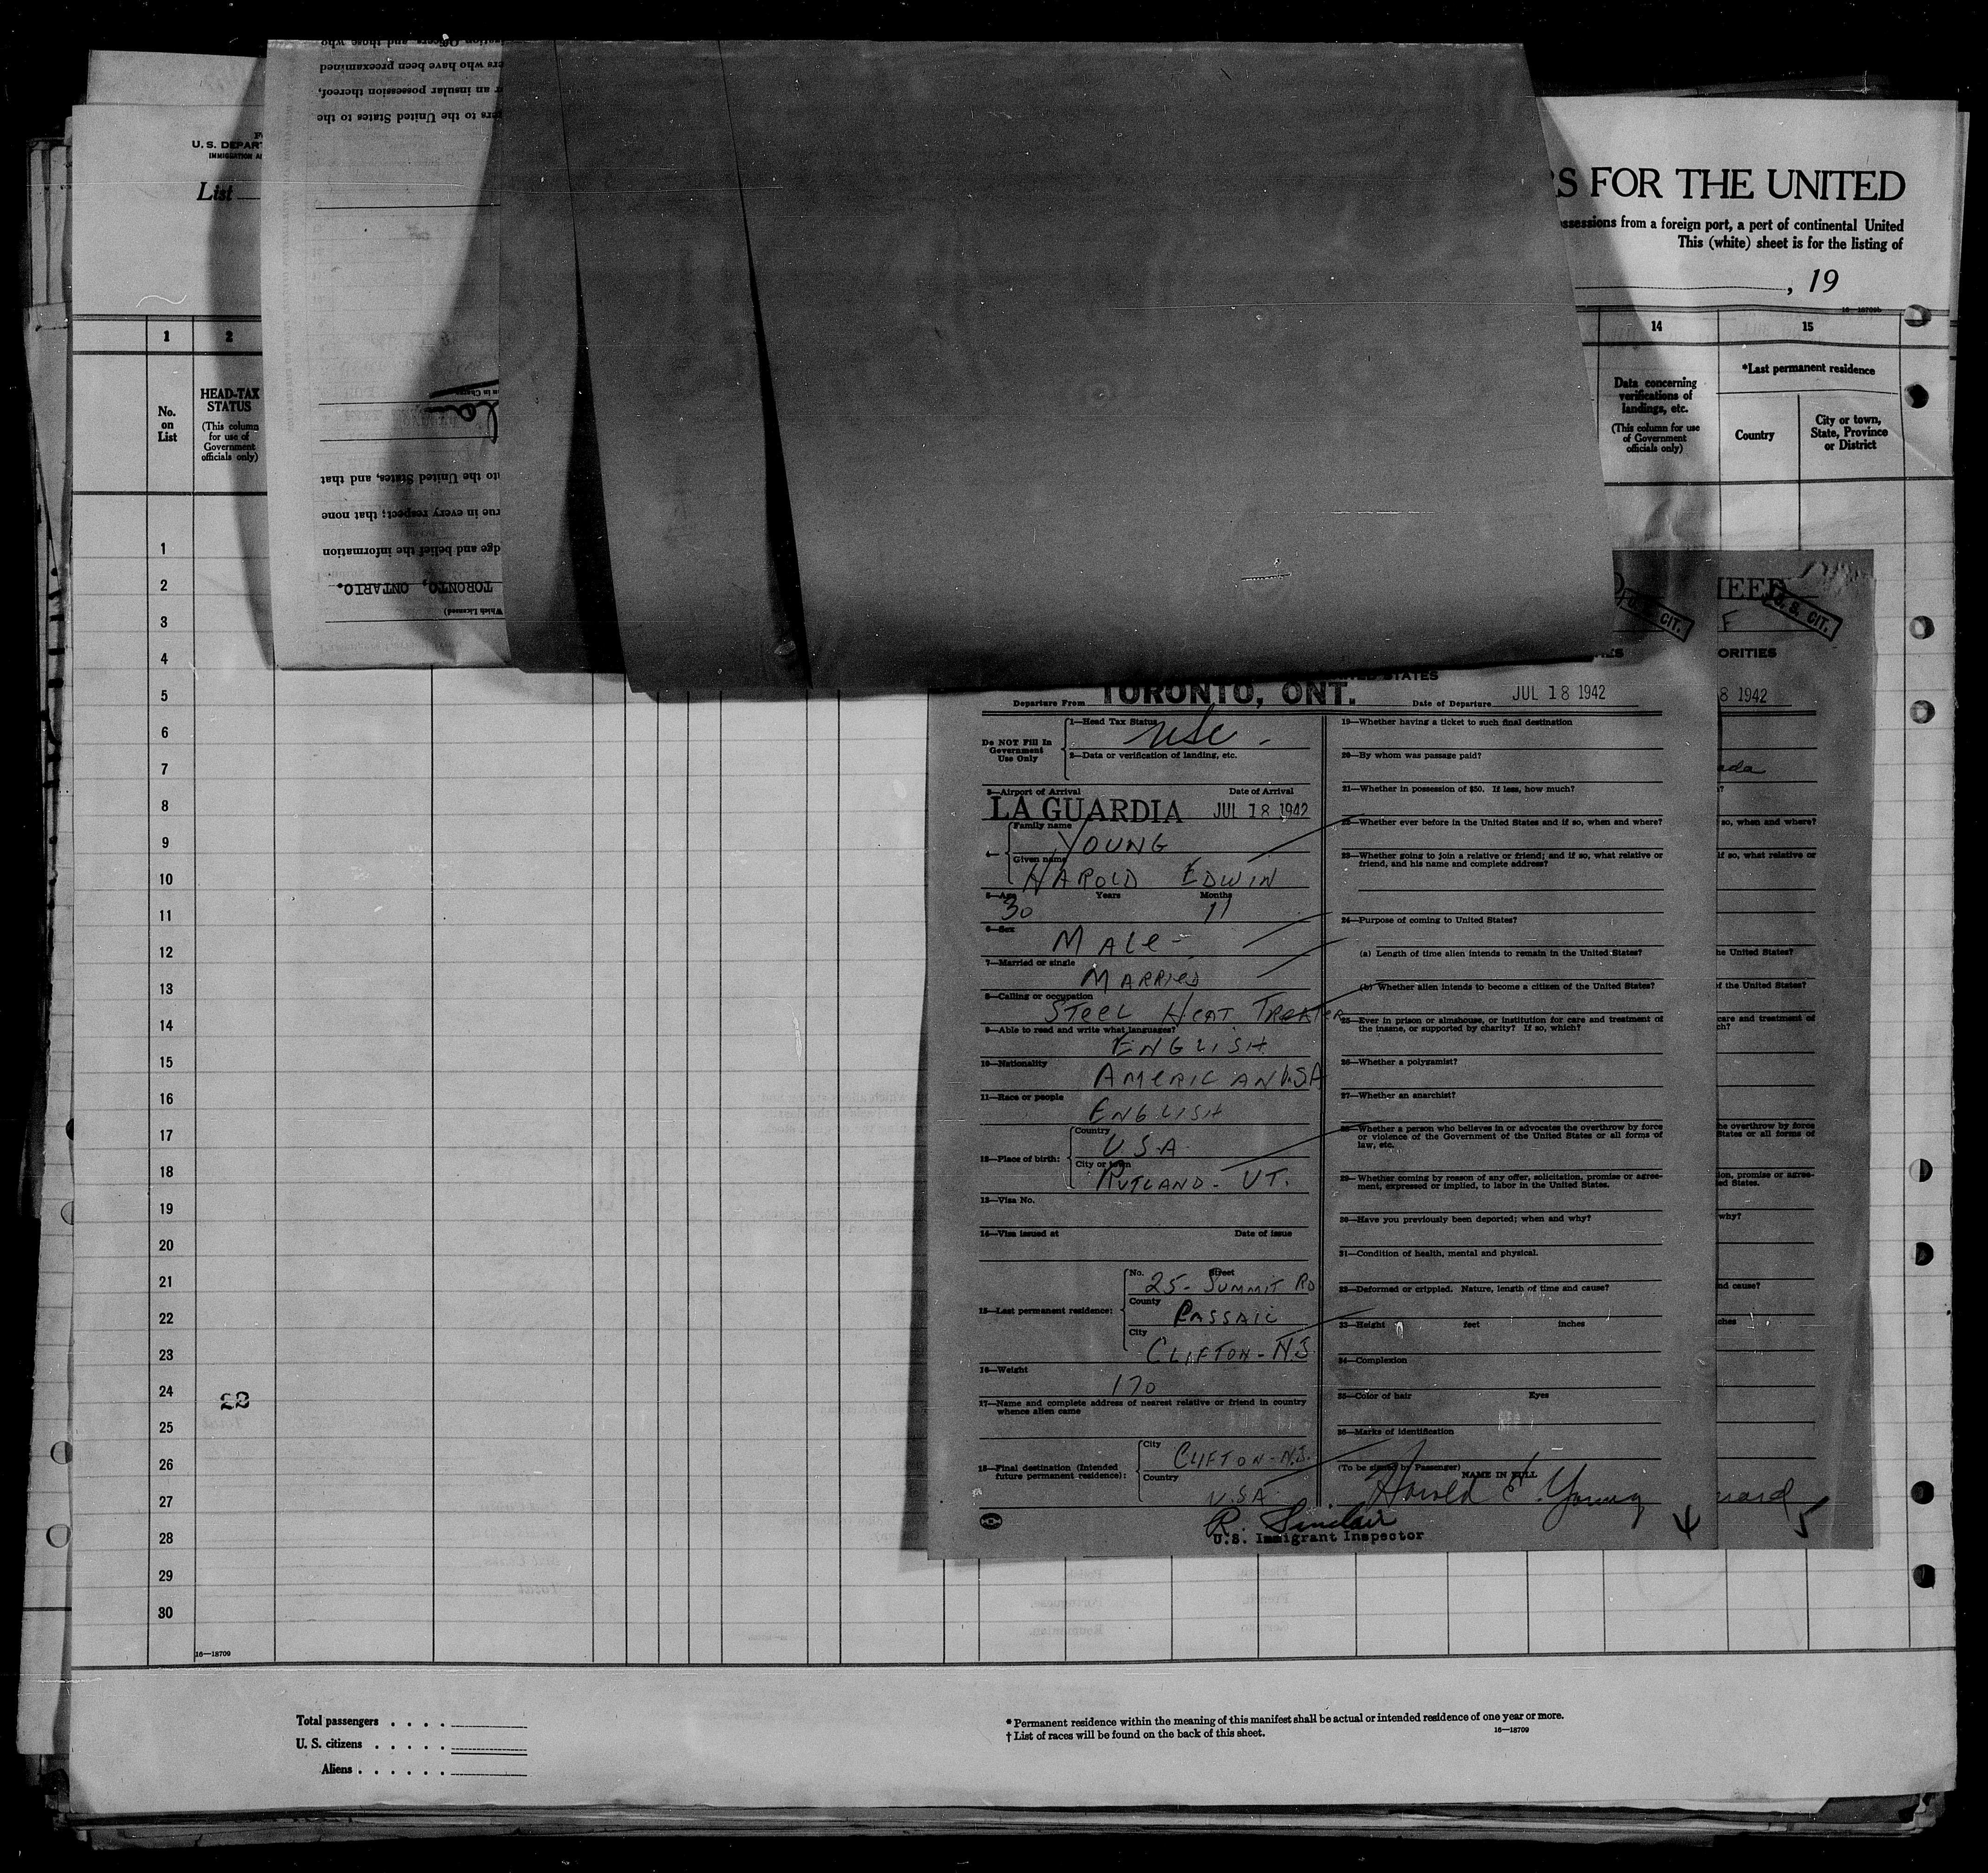 U. S. DEPART
IMMIGRATION A
List
S FOR THE UNITED
ssessions from a foreign port, a port of continental United
This (white) sheet is for the listing of
, 19
16—18709b
1
2
14
15
No.
on
List
HEAD-TAX
STATUS
(This column
for use of
Government
officials only)
Data concerning
verifications of
landings, etc.
(This column for use
of Government
officials only)
*Last permanent residence
Country
City or town,
State, Province
or District
ers who have been preexamined
or an insular possession thereof,
gers to the United States to the
to the United States, and that
rue in every respect; that none
dge and belief the information
TORONTO, ONTARIO.
Which Licensed)
1
2
3
4
5
6
7
8
9
10
11
12
13
14
15
16
17
18
19
20
21
22
23
24
25
26
27
28
29
30
22
16—18709
Total passengers . . . .
U. S. citizens . . . . .
Aliens . . . . . .
* Permanent residence within the meaning of this manifest shall be actual or intended residence of one year or more.
† List of races will be found on the back of this sheet.
16—18709
STATES
Departure From TORONTO, ONT.
Date of Departure JUL 18 1942
Do NOT Fill In
Government
Use Only
1—Head Tax Status
USC -
2—Data or verification of landing, etc.
3—Airport of Arrival
Date of Arrival
LA GUARDIA JUL 18 1942
4—
Family name
YOUNG
Given name
HAROLD EDWIN
5—Age Years Months
30 11
6—Sex
MALE -
7—Married or single
MARRIED
8—Calling or occupation
STEEL HEAT TREATER
9—Able to read and write what languages?
ENGLISH
10—Nationality
AMERICAN U.S.A
11—Race or people
ENGLISH
12—Place of birth:
Country
U.S.A
City or town
RUTLAND - VT.
13—Visa No.
14—Visa issued at Date of issue
15—Last permanent residence:
No. Street
25 - SUMMIT RD
County
PASSAIC
City
CLIFTON - NJ
16—Weight
170
17—Name and complete address of nearest relative or friend in country
whence alien came
18—Final destination (Intended
future permanent residence):
City
CLIFTON - N.J.
Country
U.S.A.
R. Sinclair
U.S. Immigrant Inspector
19—Whether having a ticket to such final destination
20—By whom was passage paid?
21—Whether in possession of $50. If less, how much?
22—Whether ever before in the United States and if so, when and where?
23—Whether going to join a relative or friend; and if so, what relative or
friend, and his name and complete address?
24—Purpose of coming to United States?
(a) Length of time alien intends to remain in the United States?
(b) Whether alien intends to become a citizen of the United States?
25—Ever in prison or almshouse, or institution for care and treatment of
the insane, or supported by charity? If so, which?
26—Whether a polygamist?
27—Whether an anarchist?
28—Whether a person who believes in or advocates the overthrow by force
or violence of the Government of the United States or all forms of
law, etc.
29—Whether coming by reason of any offer, solicitation, promise or agree-
ment, expressed or implied, to labor in the United States.
30—Have you previously been deported; when and why?
31—Condition of health, mental and physical.
32—Deformed or crippled. Nature, length of time and cause?
33—Height feet inches
34—Complexion
35—Color of hair Eyes
36—Marks of identification
(To be signed by Passenger)
NAME IN FULL
Harold E. Young
4
U. S. CIT.
F
ORITIES
8 1942
ada
so, when and where?
if so, what relative or
he United States?
of the United States?
care and treatment of
ch?
he overthrow by force
States or all forms of
ion, promise or agree-
ed States.
why?
nd cause?
ches
5